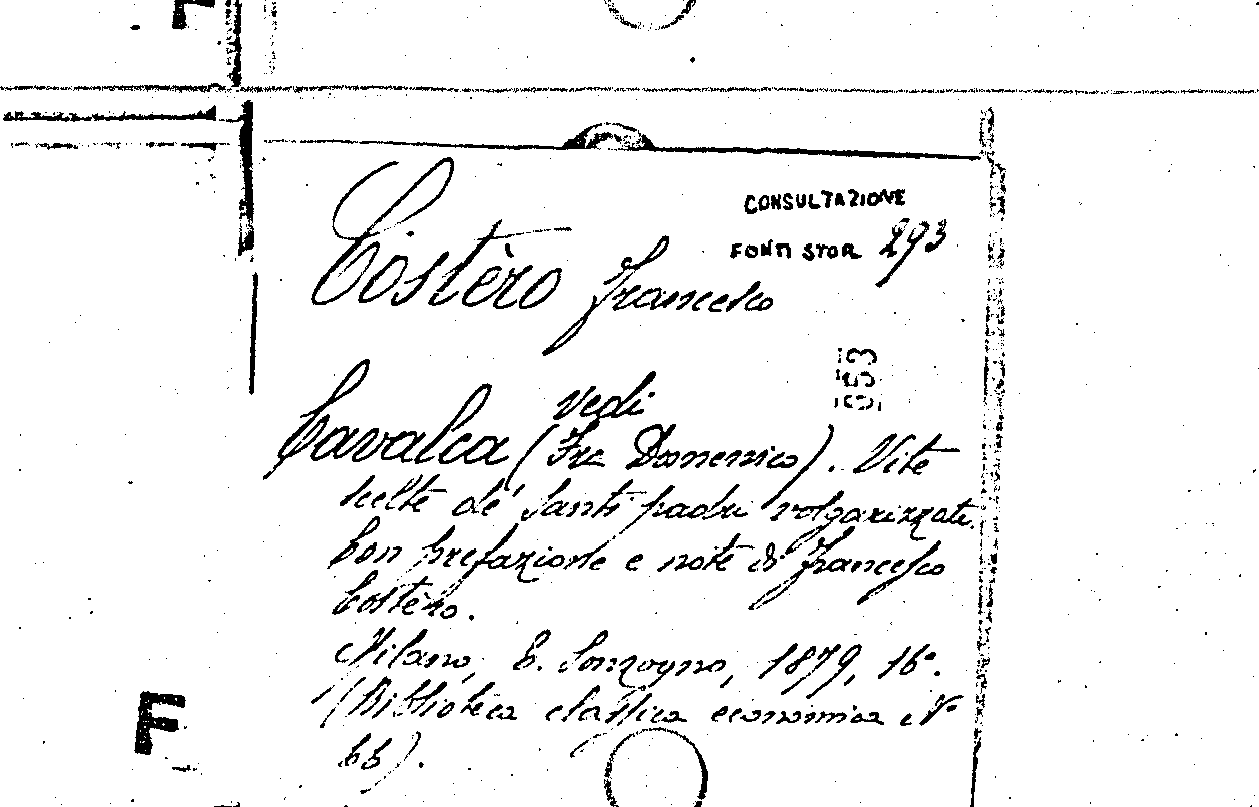 CONSULTAZIONE
FONTI STOR 293
Costèro Francesco
953
vedi
Cavalca (Fra Domenico). Vite
scelte de' Santi padri volgarizzate.
Con prefazione e note di Francesco
Costèro.
Milano, E. Sonzogno, 1879, 16°.
(Biblioteca classica economica N°
66).
F